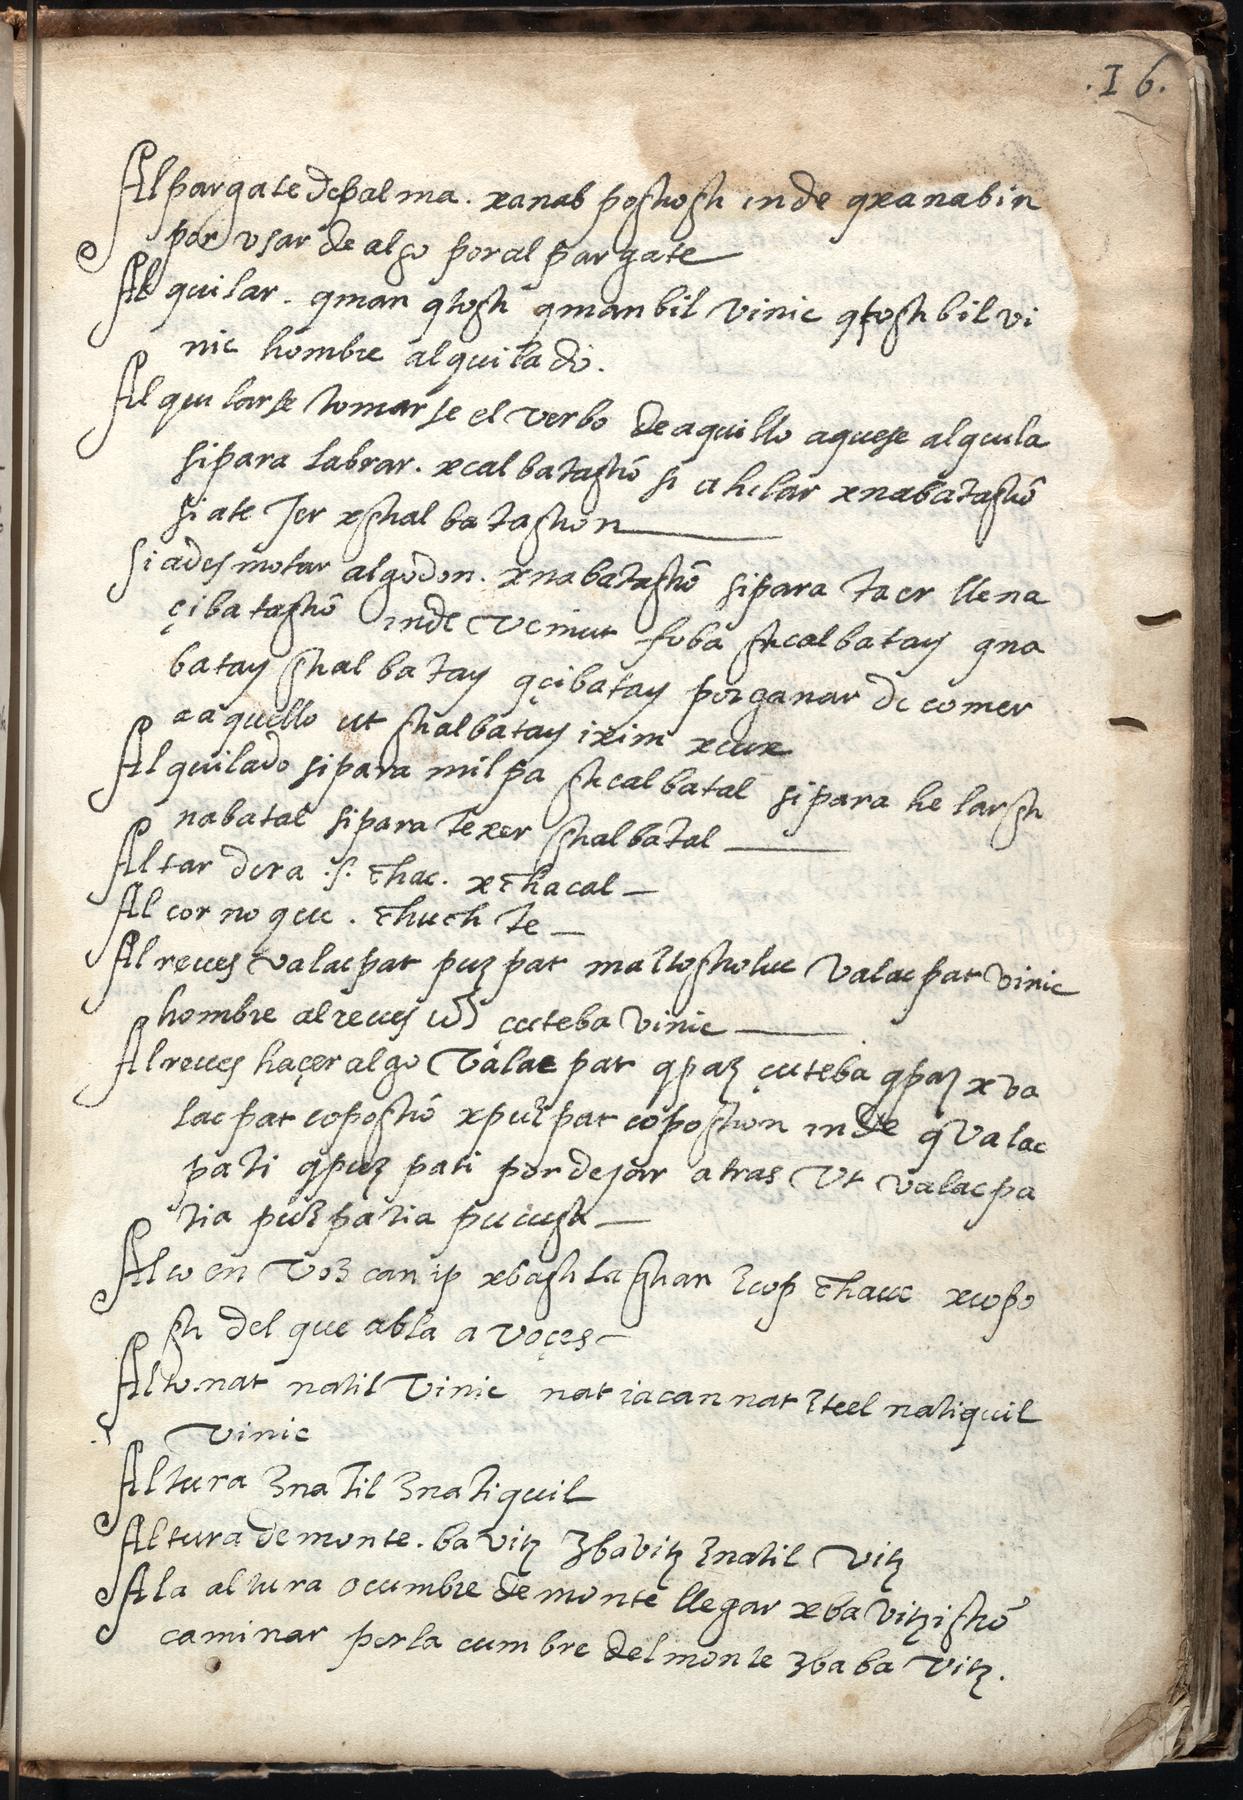 .16.
Alpargate depalma. xanab poghogh inde qxanabin
por vsar de algo por alpargate
Alquilar. qman qtogh qmanbil vinic qtoghbil vi
nic hombre alquilado.
Alquilarse tomarse el verbo de aquillo aquese alquila
sipara labrar. xcalbataghō si a hilar xnabataghō
si ate Jer xghalbataghon
si a desmotar algodon. xnabataghō sipara taer llena
çibataghō inde veniut foba ghcalbatay qna
batay ghalbatay qçibatay porganar de comer
a aquello ut ghalbatay ixim xcux
Alquilado sipara milpa ghcalbatal sipara he largh
nabatal sipara texer ghalbatal
Altar dera .s. chac. xchacal
Alcornoque. chuch te
Alreues valacpat puz pat maltogholuc valacpat vinic
hombre alreues çuteba vinic
Alreues haçer algo valac pat qpaz çuteba qpaz xva
lacpat copoghō xpuz pat copoghon inde qvalac
pati qpuz pati pordejar atras vt valacpa
tia puz patia puiugh
Alto en voz can ip xbagh laghan zcop chauc xcopo
gh del que abla a voçes
Alto. nat natil vinic nat iacan nat zteel natiquil
vinic
Altura znatil znatiquil
Altura de monte. ba vitz zbavitz znatil vitz
Ala altura o cumbre de monte llegar xba vitzighō
caminar por la cumbre del monte zbaba vitz.